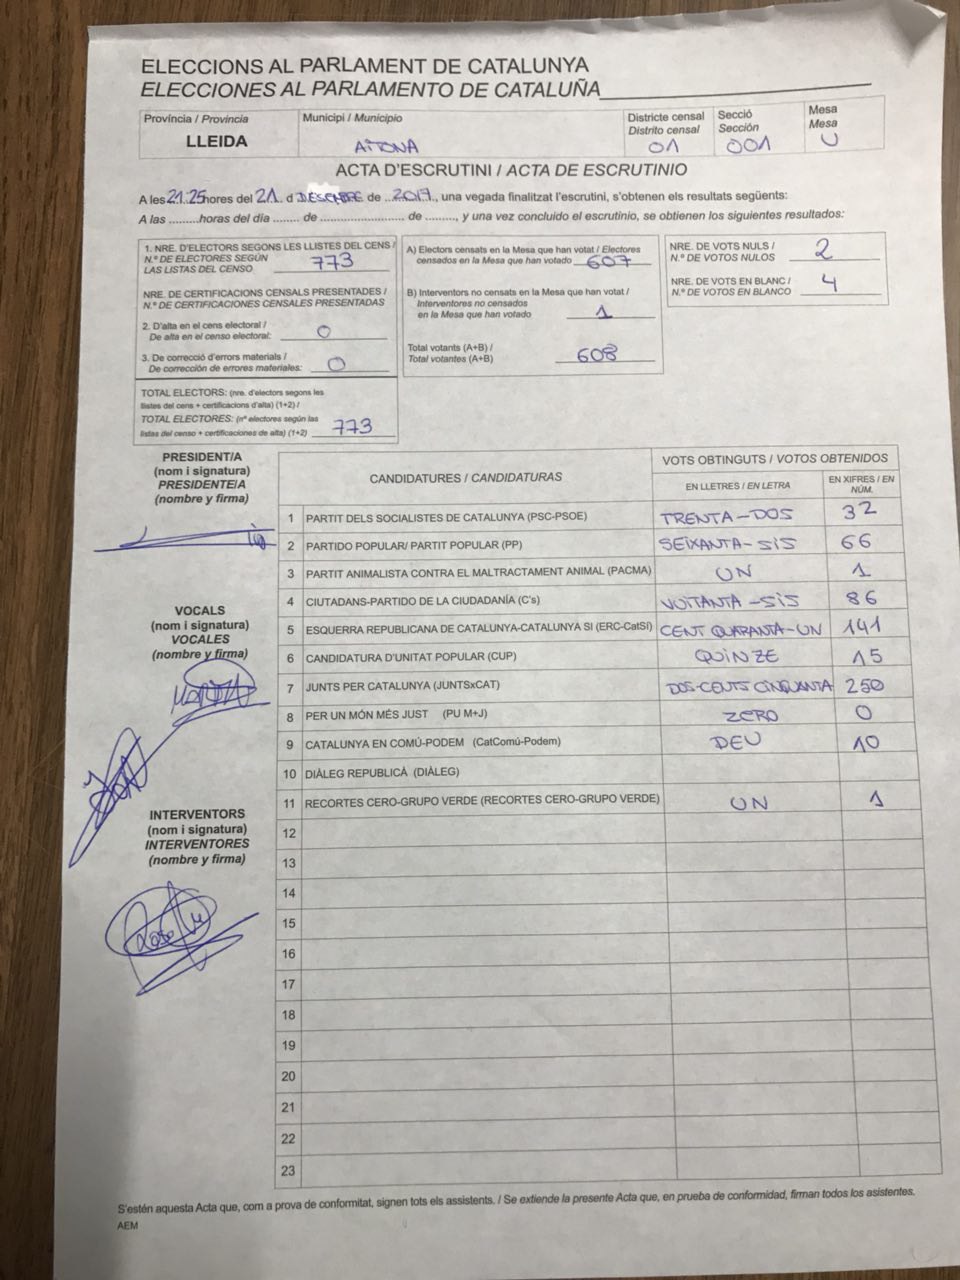 ELECCIONS AL PARLAMENT DE CATALUNYA
ELECCIONES AL PARLAMENTO DE CATALUÑA
Província / Provincia
LLEIDA
Municipi / Municipio
AITONA
Districte censal
Distrito censal
01
Secció
Sección
001
Mesa
Mesa
U
ACTA D'ESCRUTINI / ACTA DE ESCRUTINIO
A les 21:25 hores del 21. d DESEMBRE de ..2017., una vegada finalitzat l'escrutini, s'obtenen els resultats següents:
A las .........horas del día ....... de ........................ de ........, y una vez concluido el escrutinio, se obtienen los siguientes resultados:
1. NRE. D'ELECTORS SEGONS LES LLISTES DEL CENS /
N.º DE ELECTORES SEGÚN
LAS LISTAS DEL CENSO 773
NRE. DE CERTIFICACIONS CENSALS PRESENTADES /
N.º DE CERTIFICACIONES CENSALES PRESENTADAS
2. D'alta en el cens electoral /
De alta en el censo electoral: 0
3. De correcció d'errors materials /
De corrección de errores materiales: 0
TOTAL ELECTORS: (nre. d'electors segons les
llistes del cens + certificacions d'alta) (1+2) /
TOTAL ELECTORES: (nº electores según las
listas del censo + certificaciones de alta) (1+2) 773
A) Electors censats en la Mesa que han votat / Electores
censados en la Mesa que han votado 607
B) Interventors no censats en la Mesa que han votat /
Interventores no censados
en la Mesa que han votado 1
Total votants (A+B) /
Total votantes (A+B) 608
NRE. DE VOTS NULS /
N.º DE VOTOS NULOS 2
NRE. DE VOTS EN BLANC /
N.º DE VOTOS EN BLANCO 4
PRESIDENT/A
(nom i signatura)
PRESIDENTE/A
(nombre y firma)
VOCALS
(nom i signatura)
VOCALES
(nombre y firma)
INTERVENTORS
(nom i signatura)
INTERVENTORES
(nombre y firma)
CANDIDATURES / CANDIDATURAS
VOTS OBTINGUTS / VOTOS OBTENIDOS
EN LLETRES / EN LETRA
EN XIFRES / EN NÚM.
1 PARTIT DELS SOCIALISTES DE CATALUNYA (PSC-PSOE) TRENTA-DOS 32
2 PARTIDO POPULAR/ PARTIT POPULAR (PP) SEIXANTA-SIS 66
3 PARTIT ANIMALISTA CONTRA EL MALTRACTAMENT ANIMAL (PACMA) UN 1
4 CIUTADANS-PARTIDO DE LA CIUDADANÍA (C's) VUITANTA-SIS 86
5 ESQUERRA REPUBLICANA DE CATALUNYA-CATALUNYA SI (ERC-CatSí) CENT QUARANTA-UN 141
6 CANDIDATURA D'UNITAT POPULAR (CUP) QUINZE 15
7 JUNTS PER CATALUNYA (JUNTSxCAT) DOS-CENTS CINQUANTA 250
8 PER UN MÓN MÉS JUST (PU M+J) ZERO 0
9 CATALUNYA EN COMÚ-PODEM (CatComú-Podem) DEU 10
10 DIÀLEG REPUBLICÀ (DIÀLEG)
11 RECORTES CERO-GRUPO VERDE (RECORTES CERO-GRUPO VERDE) UN 1
12
13
14
15
16
17
18
19
20
21
22
23
S'estén aquesta Acta que, com a prova de conformitat, signen tots els assistents. / Se extiende la presente Acta que, en prueba de conformidad, firman todos los asistentes.
AEM